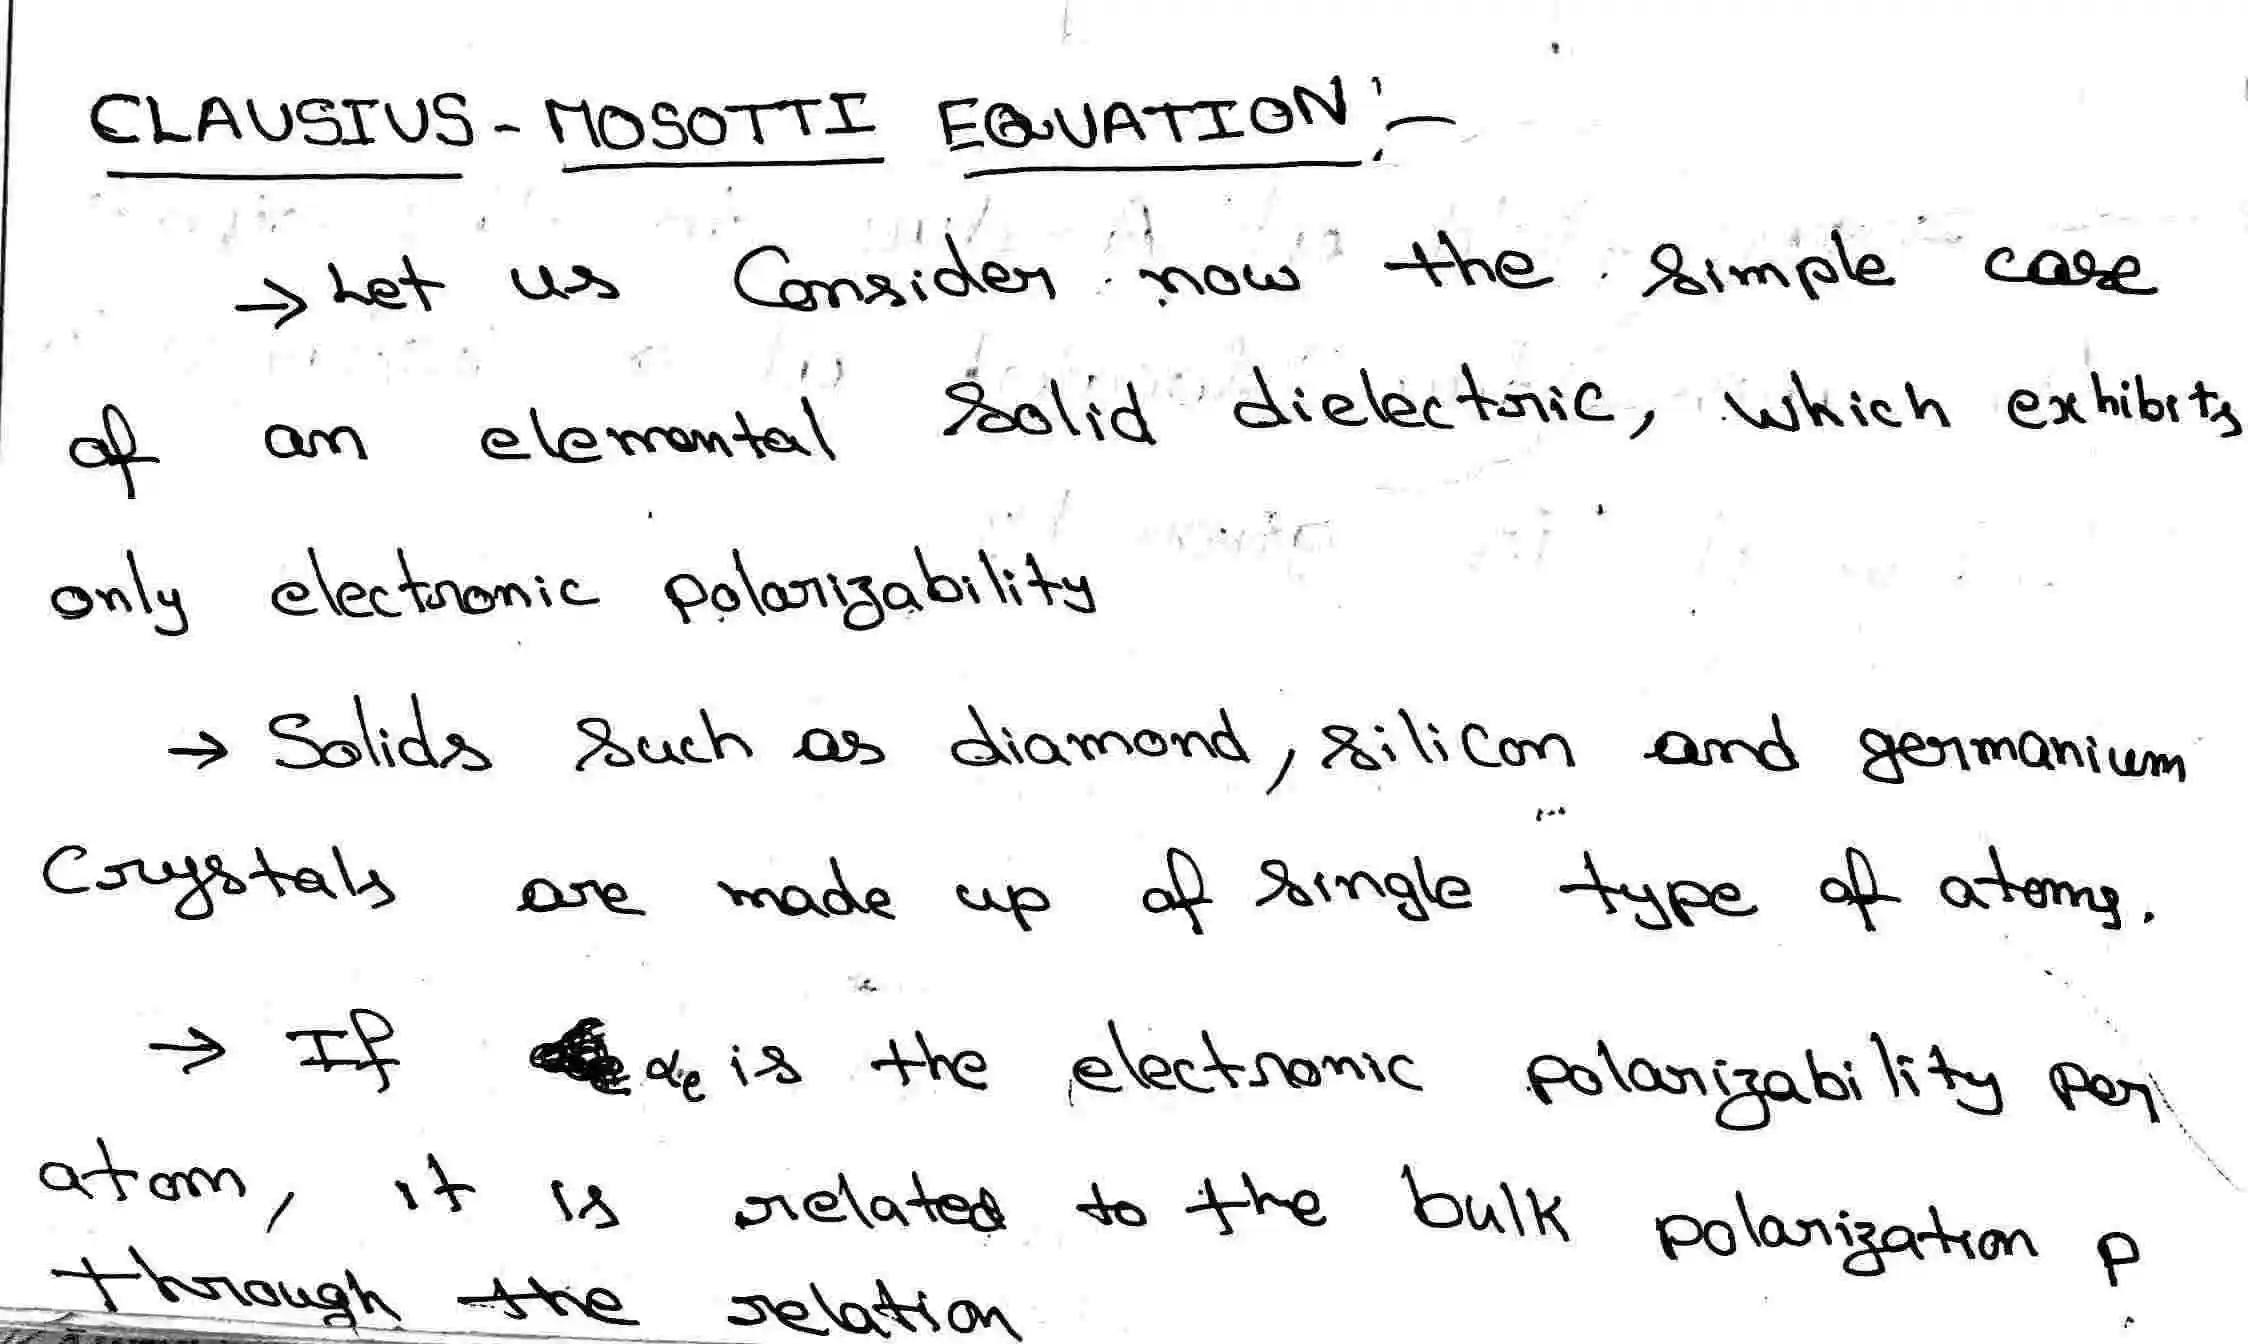 CLAUSIUS - MOSOTTI EQUATION :-
→ Let us Consider now the simple case
of an elemental solid dielectric, which exhibits
only electronic polarizability
→ Solids such as diamond, silicon and germanium
Crystals are made up of single type of atoms.
→ If αe is the electronic polarizability per
atom, it is related to the bulk polarization P
through the relation